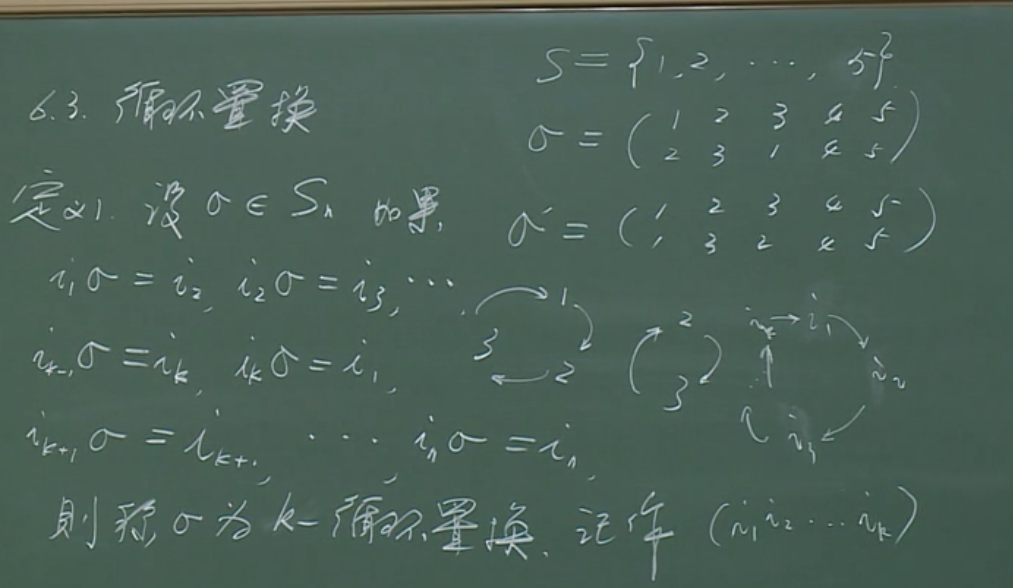 6.3. 循环置换
定义1. 设 σ ∈ Sₙ 如果,
i₁σ = i₂, i₂σ = i₃, ⋯
iₖ₋₁σ = iₖ, iₖσ = i₁,
iₖ₊₁σ = iₖ₊₁, ⋯, iₙσ = iₙ,
则称 σ 为 k-循环置换. 记作 (i₁ i₂ ⋯ iₖ)
S = {1, 2, ⋯, 5}
σ = ( 1 2 3 4 5
2 3 1 4 5 )
σ′ = ( 1 2 3 4 5
1 3 2 4 5 )
→ 1
3
← 2
2
3
iₖ → i₁
i₂
i₃